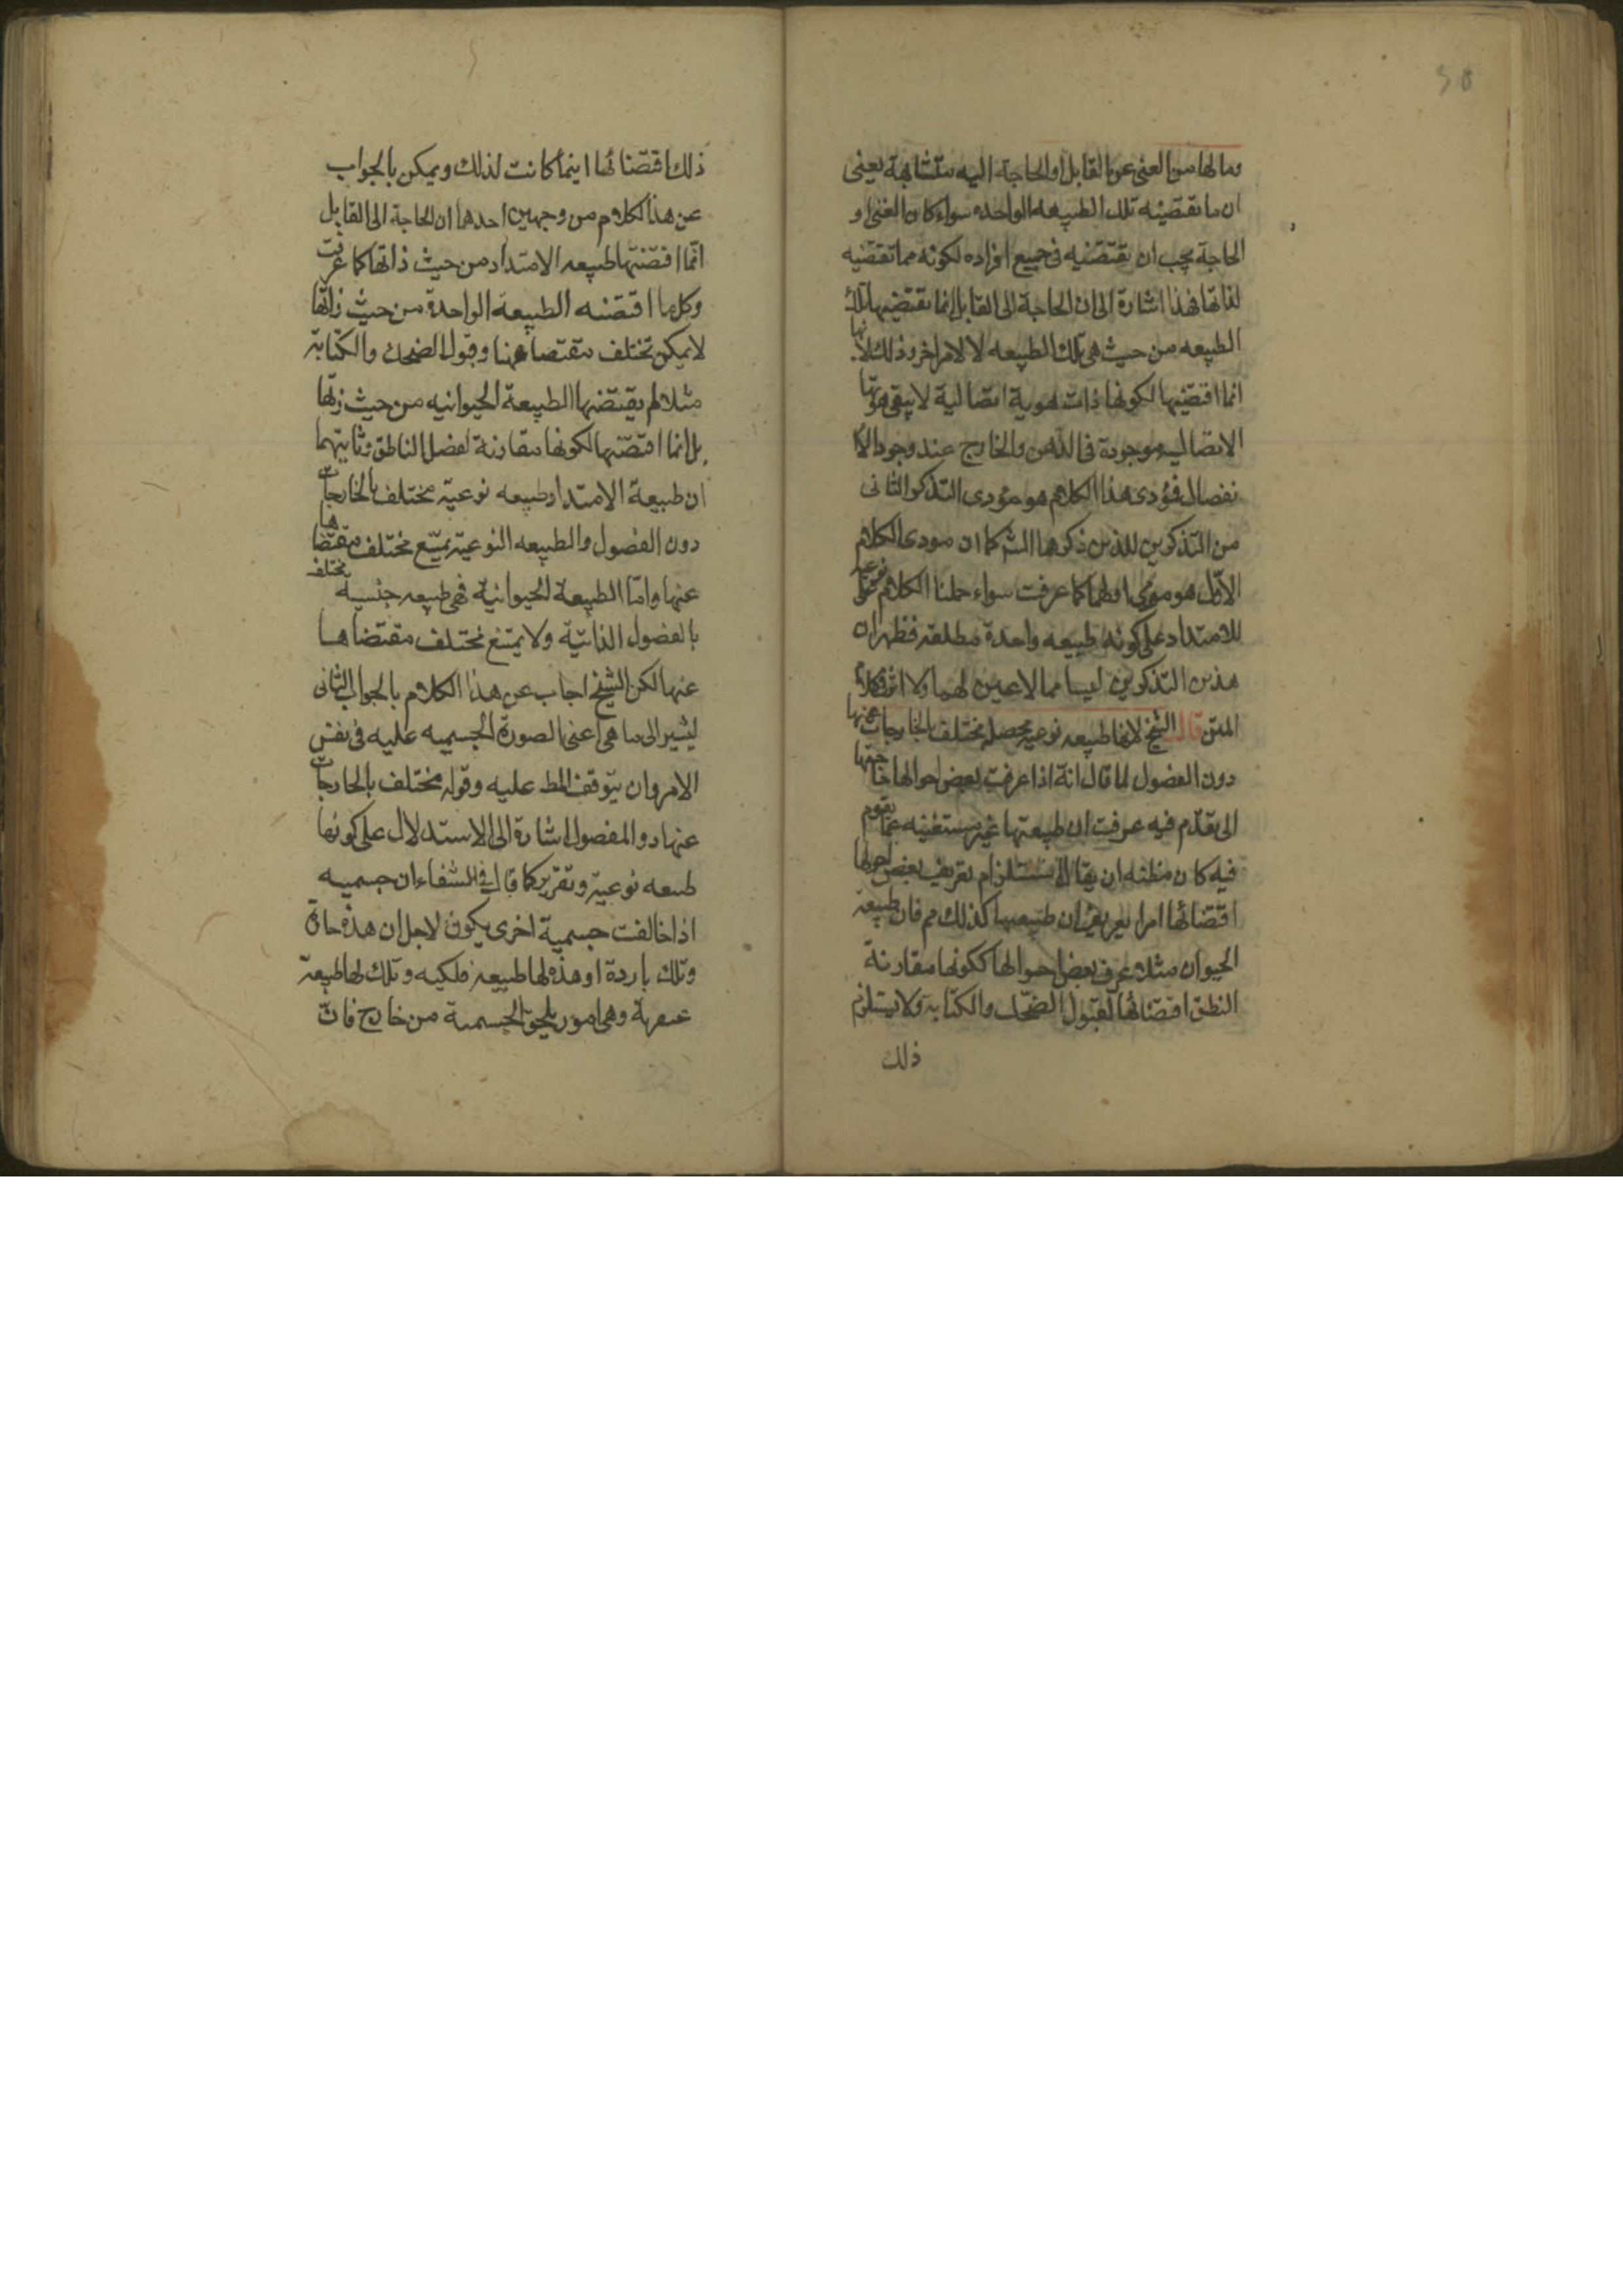 وما لها من الغنى عن القابل او الحاجة اليه متشابهة يعنى
ان ما تقتضيه تلك الطبيعه الواحده سواء كان الغنى او
الحاجة يجب ان تقتضيه فى جميع افراده لكونه مما تقتضيه
لذاتها فهذا اشارة الى ان الحاجة الى القابل انما تقتضيها تلك
الطبيعه من حيث هى تلك الطبيعه لا لامر اخر وذلك لانها
انما اقتضيها لكونها ذات هوية اتصالية لا يبقى هويتها
الاتصاليه موجودة فى الذهن والخارج عند وجود الا
نفصال فؤدى هذا الكلام هو مؤدى التذكر الثانى
من التذكرين للذين ذكرهما الش كما ان مودى الكلام
الاول هو مودى اولهما كما عرفت سواء حملنا الكلام
للامتداد على كونه طبيعه واحدة مطلقة فظهر ان
هذين التذكرين ليسا مما لا عين لهما ولا اثر فى كلام
المتن قال الشيخ لانها طبيعه نوعيه محصله تختلف بالخارجات عنها
دون الفصول لما قال انه اذا عرفت بعض احوالها حاجتها
الى تقدم فيه عرفت ان طبيعتها غير مستغنيه عما تقوم
فيه كان مظنه ان يقال لا نستلزام تعريف بعض احوالها
اقتضائها امرا تعريف ان طبيعتها كذلك مم فان طبيعة
الحيوان مثلا عرف بعض احوالها ككونها مقارنة
النطق اقتضائها لقبول الضحك والكتابة ولا يستلزم
ذلك
ذلك اقتضائها اينما كانت لذلك ويمكن بالجواب
عن هذا الكلام من وجهين احدهما ان الحاجة الى القابل
انما اقتضتها طبيعه الامتداد من حيث ذاتها كما عرفت
وكل ما اقتضته الطبيعة الواحدة من حيث ذاتها
لا يمكن تختلف مقتضاها عنها وقبول الضحك والكتابة
مثلا لم يقتضها الطبيعة الحيوانيه من حيث ذاتها
بل انما اقتضتها لكونها مقارنة لفصل الناطق وثانيهما
ان طبيعة الامتداد طبيعه نوعية مختلف بالخارجات
دون الفصول والطبيعه النوعية يمتنع مختلف مقتضاها
عنها واما الطبيعة الحيوانية فهى طبيعه جنسية تختلف
بالفصول الذاتية ولا يمتنع تختلف مقتضاها
عنها لكن الشيخ اجاب عن هذا الكلام بالجواب الثانى
ليشير الى ما هى اعنى الصورة الجسميه عليه فى نفس
الامر وان يتوقف المط عليه وقوله مختلف بالخارجات
عنها دو المفصول اشارة الى الاستدلال على كونها
طبعه نوعية وتقريره كما قال فى الشفاء ان جسميه
اذا خالفت جسمية اخرى يكون لاجل ان هذه حارة
وتلك باردة او هذه لها طبيعة فلكيه وتلك لها طبيعة
عنصرية وهى امور يلحق الجسمية من خارج فان